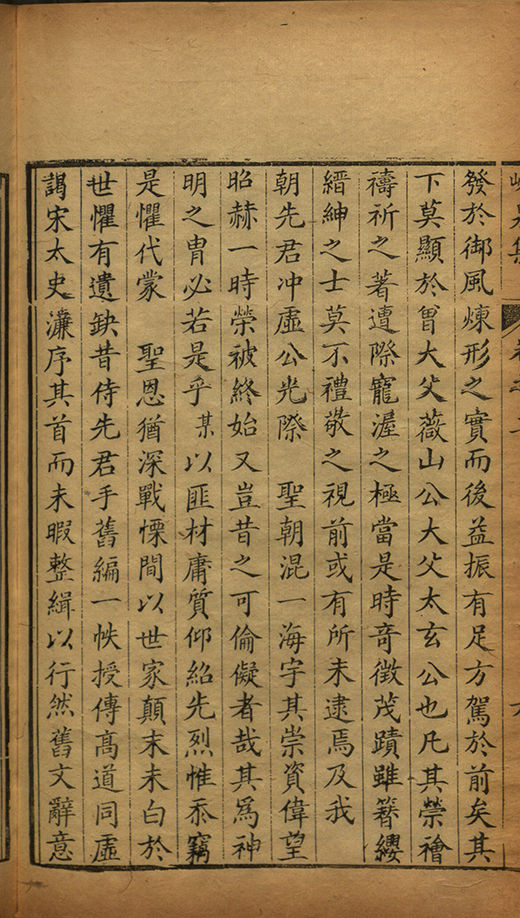 發於御風煉形之實而後益振有足方駕於前矣其
下莫顯於曾大父薇山公大父太玄公也凡其禜禬
禱祈之著遭際寵渥之極當是時奇徵茂蹟雖簪纓
縉紳之士莫不禮敬之視前或有所未逮焉及我
朝先君冲虛公光際　聖朝混一海宇其崇資偉望
昭赫一時榮被終始又豈昔之可倫儗者哉其為神
明之冑必若是乎某以匪材庸質仰紹先烈惟忝竊
是懼代蒙　聖恩猶深戰慄間以世家顛末未白於
世懼有遺缺昔侍先君手舊編一帙授傳高道同虛
謁宋太史濂序其首而未暇整緝以行然舊文辭意